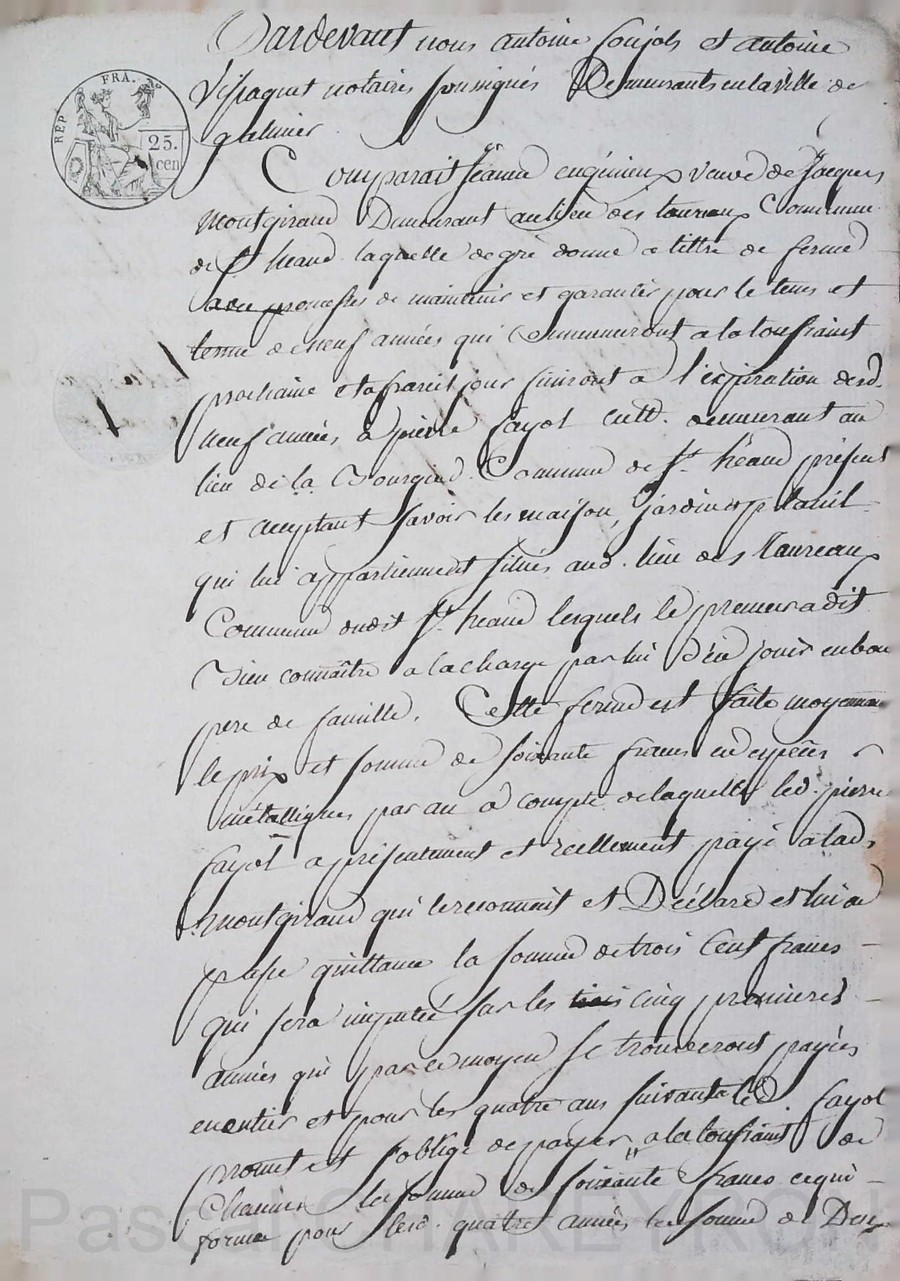 Pardevant nous antoine soujols et antoine
Vissaguet notaires soussignés Demeurants en la ville de
galmier
REP. FRA.
25.
cen
Comparait Jeanne enjénieux veuve de Jacques
Montgiraud Demeurant au lieu des taureaux Commune
de St. heand laquelle de gré donne a tittre de ferme
avec promesses de maintenir et garantir pour le tems et
terme de neuf années qui Commenceront a la toussaint
prochaine et a pareil jour finiront a l'expiration desd.
neuf années, à pierre fayol cultt. demeurant au
lieu de la Commune de St. héand présent
et acceptant savoir les maison, jardin et
qui lui appartiennent situés aud. lieu des taureaux
Commune dudit St. heand lesquels le preneur a dit
bien connaître a la charge par lui d'en jouir en bon
pere de famille. Cette ferme est faite moyennant
le prix et somme de soixante francs en espèces
métalliques par an à compte de laquelle led. pierre
fayol a présentement et réellement payé a lad.
montgiraud qui le reconnait et Déclare et lui en
passe quittance la somme de trois Cent francs
qui sera imputée sur les trois cinq premieres
années qui par ce moyen se trouveront payées
en entier et pour les quatre ans suivants led. fayol
promet et s'oblige de payer a la toussaint de
Chacune la somme de soixante francs ce qui
forme pour lesd. quatre années la somme de Deux
Pascal CHAREYRON